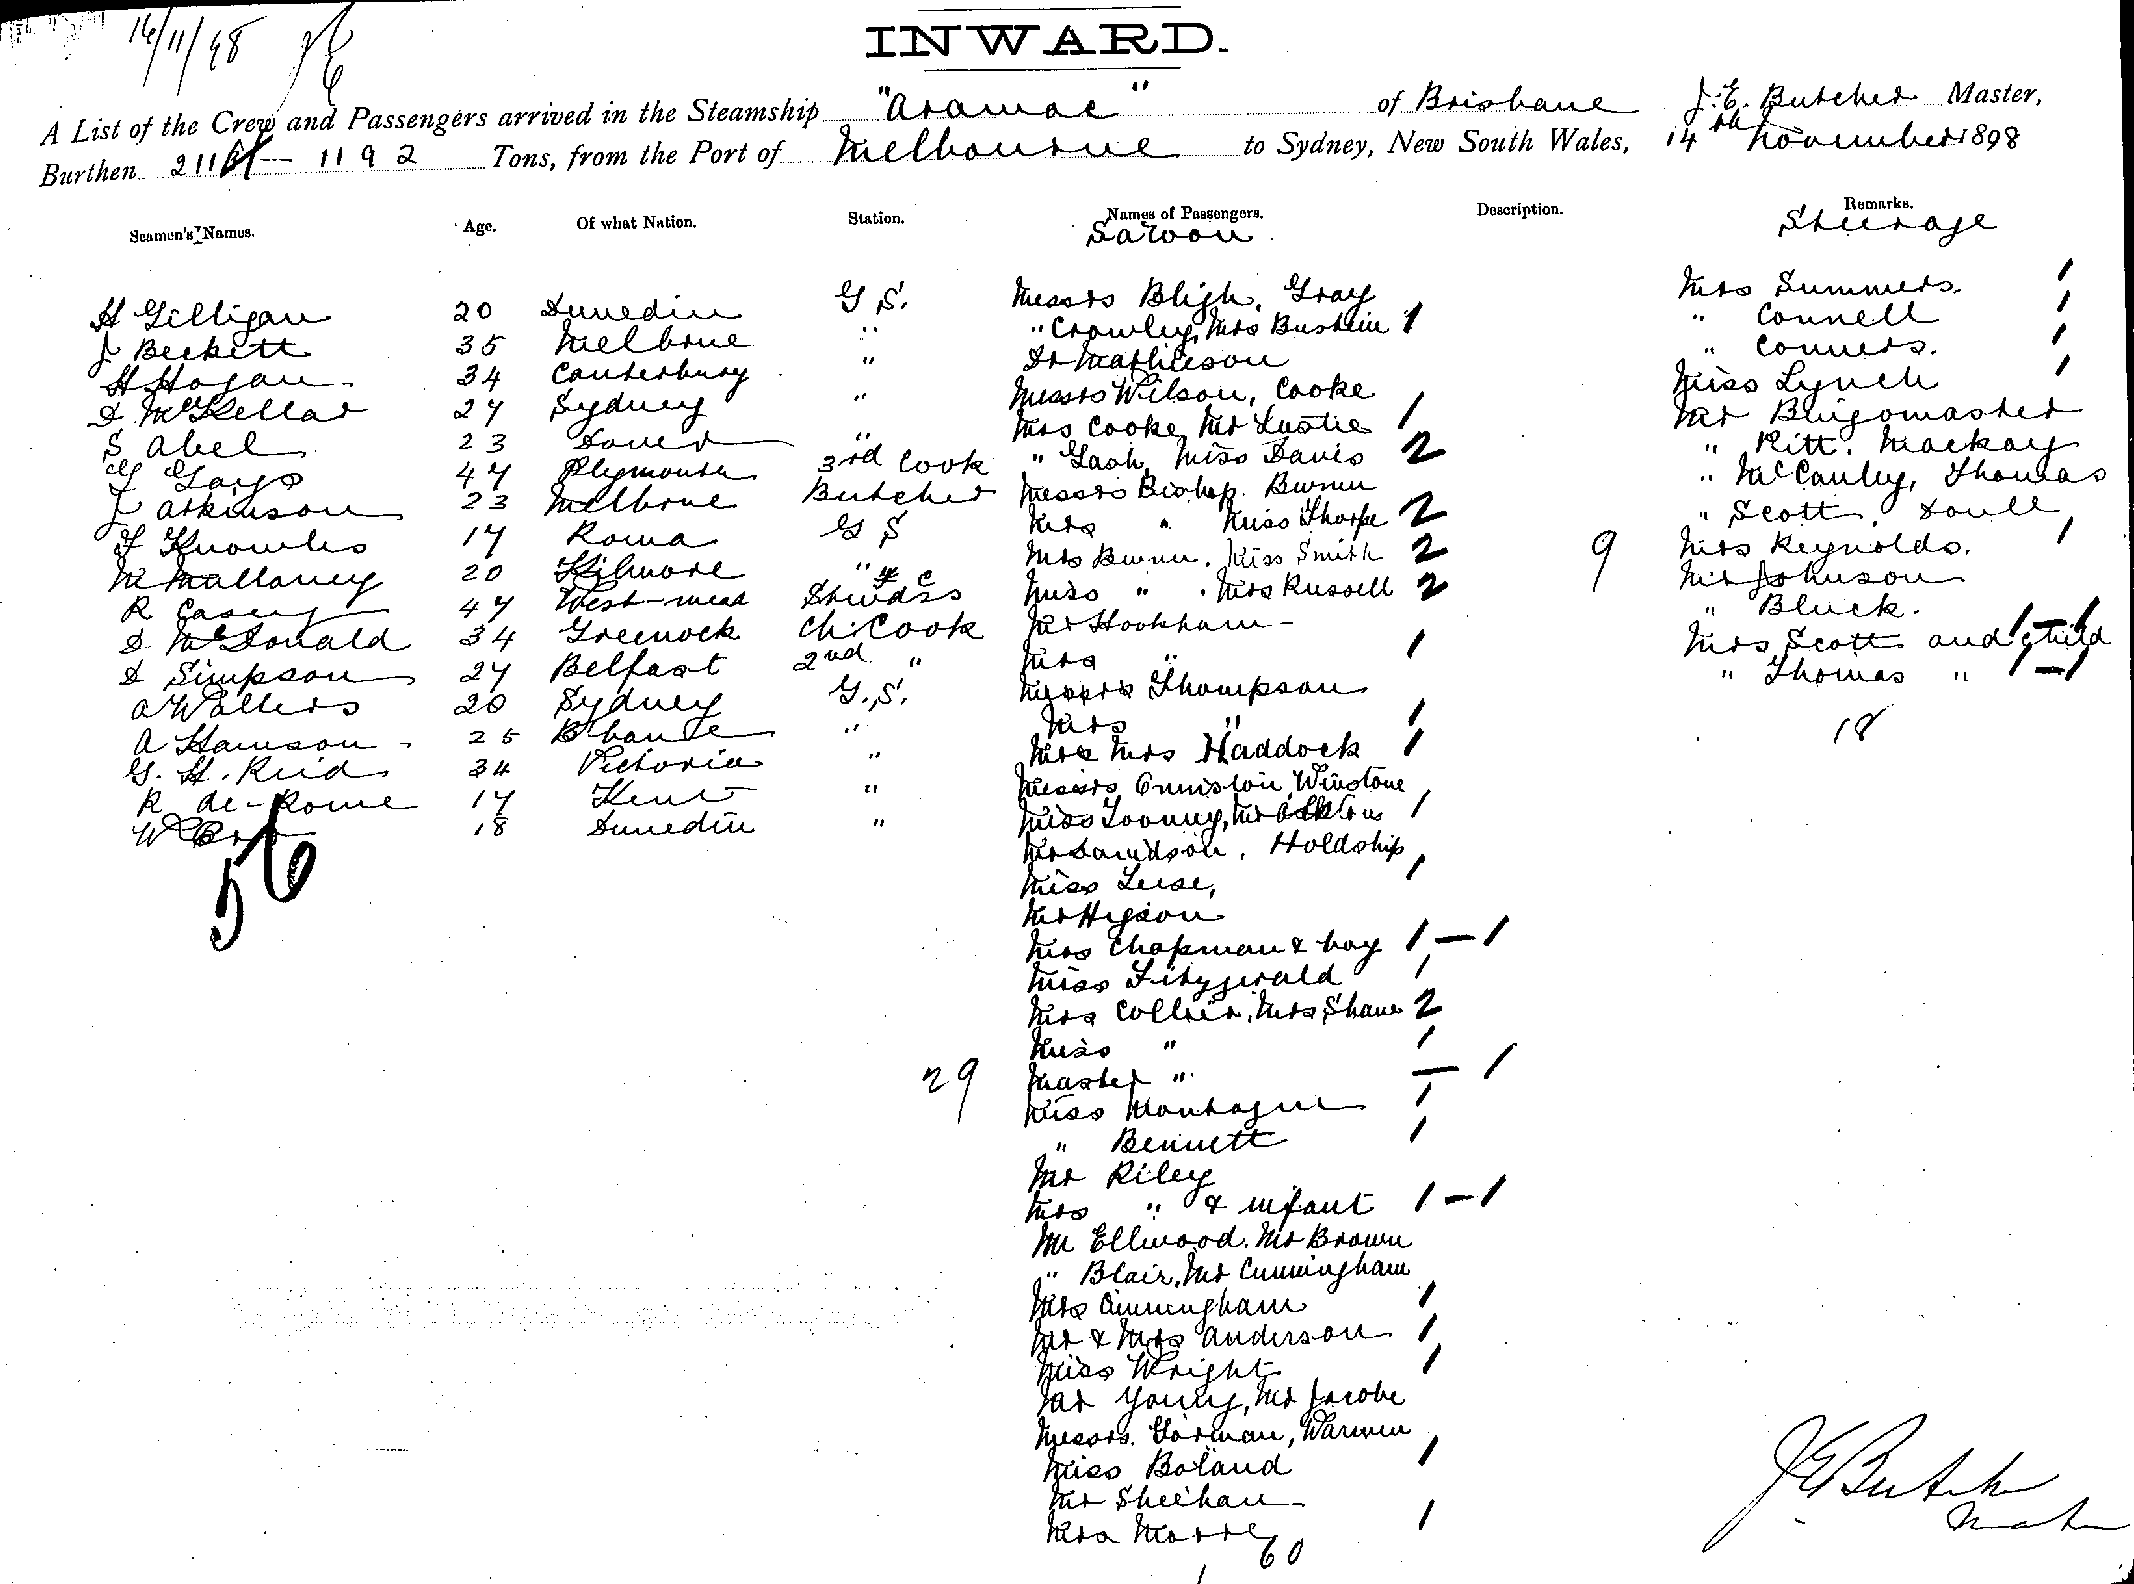 16/11/98
INWARD.
A List of the Crew and Passengers arrived in the Steamship "Aramac" of Brisbane J. E. Butcher Master,
Burthen 1192 Tons, from the Port of Melbourne to Sydney, New South Wales, 14th November 1898
Seamen's Names. Age. Of what Nation. Station. Names of Passengers. Description. Remarks.
Saloon Steerage
H Gilligan 20 Dunedin G S.
J Beckett 35 Melbrne "
H Hogan 34 Canterbury "
D McKellar 27 Sydney "
S Abel 23 Dover "
47 Plymouth 3rd Cook
J Atkinson 23 Melbrne Butcher
F Knowles 17 Roma G S
M Mullaney 20 Kilmore "
R Casey 47 West-mead
D McDonald 34 Greenock Ch. Cook
D Simpson 27 Belfast 2nd "
A Walters 20 Sydney G. S.
A Harrison 25 B'bane "
G. H. Reid 34 Victoria "
R de-Rome 17 Kent "
W 18 Dunedin "
56
Messrs Bligh, Gray
" Crowley, Mrs 1
Dr Mathieson
Messrs Wilson, Cooke
Mrs Cooke, Mr 1
" Gash, Miss Davis 2
Messrs Bishop.
Mrs " Miss Thorpe 2
Mrs Miss Smith 2
Miss " Mrs Russell 2
Mr Hookham
Mrs " 1
Messrs Thompson
Mrs " 1
Mrs Haddock 1
Messrs Ormiston, Winstone
Miss 1
Mr Davidson, Holdship
Miss 1
Mr Higson
Mrs Chapman & boy 1 - 1
Miss Fitzgerald 1
Mrs Collier, Mrs Shane 2
Miss " 1
29 Master " - 1
Miss Montague 1
" Bennett 1
Mr Riley
Mrs " & infant 1 - 1
Mr Ellwood. Mr Brown
" Blair, Mr Cunningham
Mrs Cunningham 1
Mr & Mrs Anderson 1
Miss Wright 1
Mr Young, Mr Jacobe
Messrs. Gorman, Warren
Miss Boland 1
Mr Sheehan
Mrs 1
60
Mrs Summers. 1
" Connell 1
" Conners. 1
Miss Lynch 1
Mr Burgomaster
" Pitt. Mackay
" McCauley, Thomas
" Scott, Doull
9 Mrs Reynolds. 1
Mr Johnson
" Bluck.
Mrs Scott and child 1 - 1
" Thomas " 1 - 1
18
J E Butcher
Master